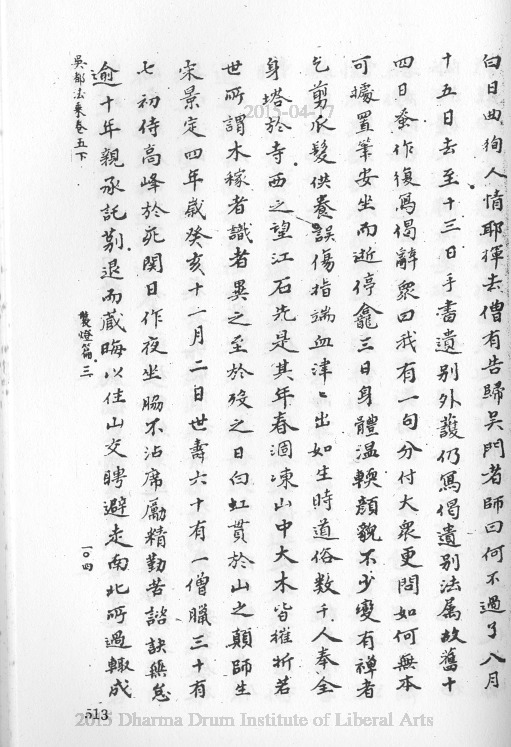 白日曲徇人情耶揮去僧有告歸吳門者師曰何不過了八月
十五日去至十三日手書遺別外護仍寫偈遺別法屬故舊十
四日蚤作復寫偈辭衆曰我有一句分付大衆更問如何無本
可據置筆安坐而逝停龕三日身體溫輭顏貌不少變有禪者
乞剪爪髮供養誤傷指端血津々出如生時道俗数千人奉全
身塔於寺西之望江石先是其年春涸凍山中大木皆摧折若
世所謂木稼者識者異之至於歿之日白虹貫於山之顛師生
宋景定四年歲癸亥十一月二日世壽六十有一僧臘三十有
七初侍高峰於死関日作夜坐脇不沾席勵精勤苦諮訣無怠
逾十年親承託剪退而藏晦以住山交聘避走南北所過輙成
吳都法乗卷五下
襲燈篇三
一〇四
513
2015-04-17
2015 Dharma Drum Institute of Liberal Arts